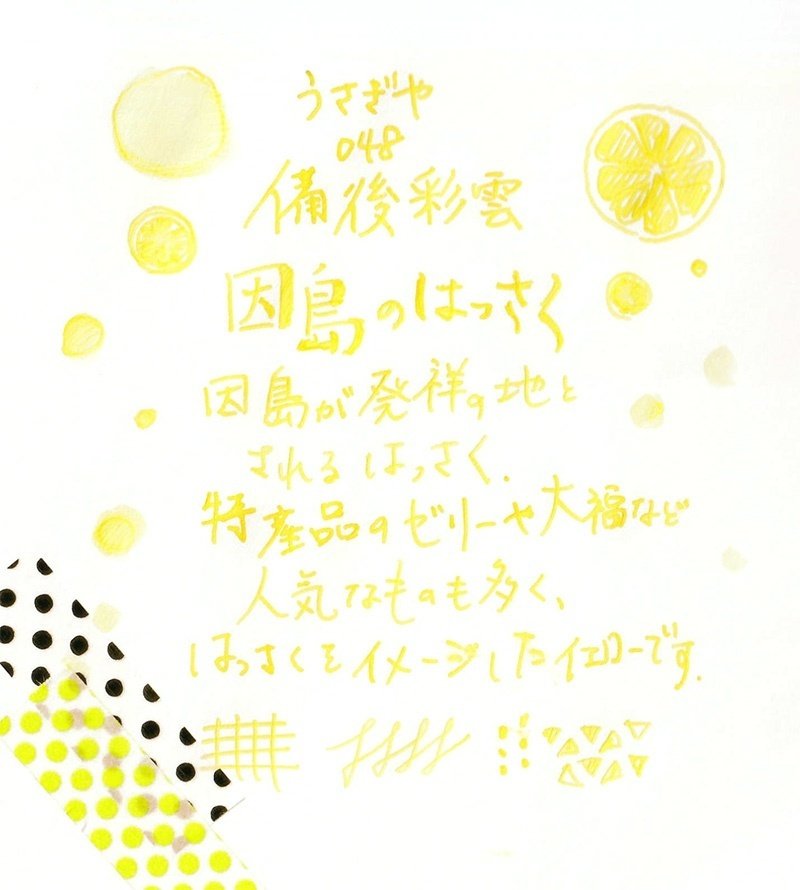 うさぎや
048
備後彩雲
因島のはっさく
因島が発祥の地と
されるはっさく.
特産品のゼリーや大福など
人気なものも多く、
はっさくをイメージしたイエローです.